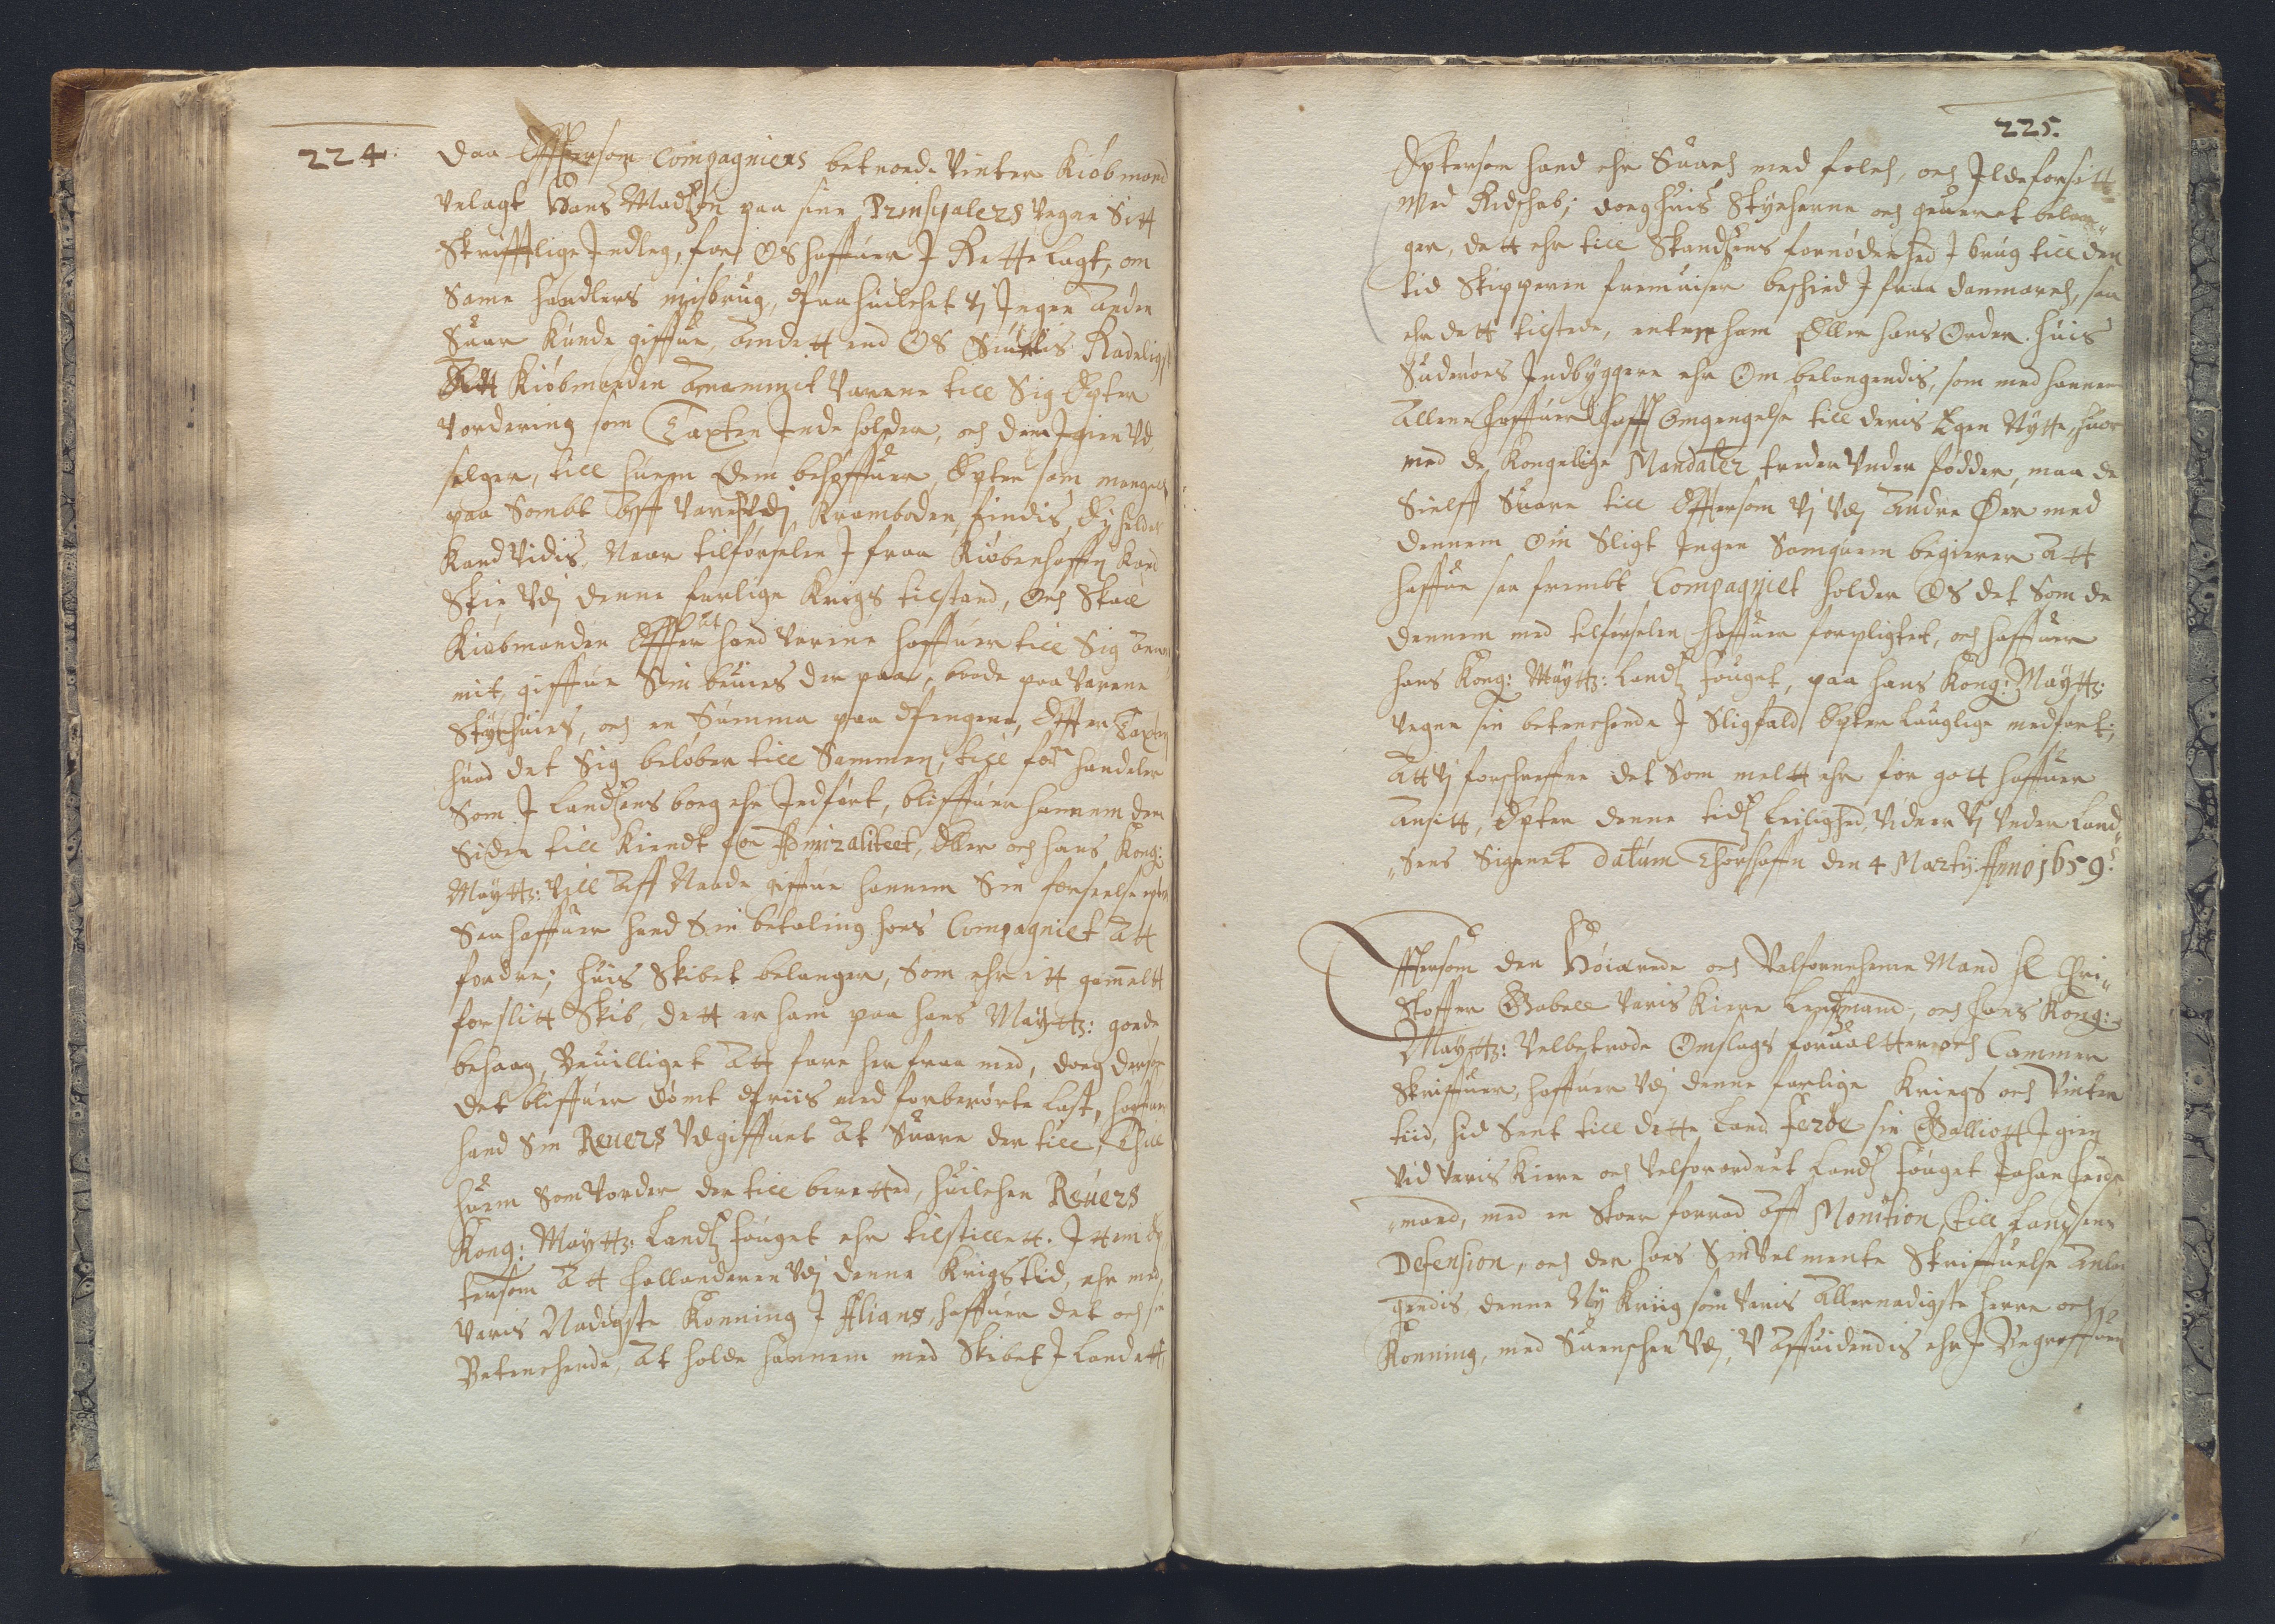 224.
daa Efftersom Compagniens betroede Vinter Kiøbmand
Velagt Hans Madtzøn paa sine Prinsipalers Vegne Sitt
Skrifftlige Indleg, for Os haffuer J Rette lagt, om
Same handlers misbrug, Paa huilchet Vj Ingen anden
Suar kunde giffue, andett end Os Siuntis Radeligst
Att Kiøbmanden Anammit Varene till Sig Epter
Vordering som Taxten Inde holder, och dem Igien Vd
selger, till huem dem behøffuer, Epter som mangell
paa Sombt Aff Vare Vdj Kramboden findis, Ey heller
Kand Vidis Naar tilførselen J fraa Kiøbenhaffn Kand
Skie Vdj denne farlige Krigs tilstand, Och Skall
Kiøbmanden Efftter hand Varene haffuer till Sig anam
mit, giffue Sin beuies der paa, baade paa Varene
Stychuies, och en Summa paa Pengene, Effter Taxten
huad det Sig beløber till Sammen, till forn handeler
Som J landsens bog ehr Indført, bliffuer hannem den
Siden till kiendt fra Admiraliteet, Eller och hans Kong:
Maytz: Vill Aff Naade giffue hannem Sin forseelse epter
Saa haffuer hand Sin betaling hoes Compagniet Att
fordre; huis Skibet belanger, Som ehr itt gammelt
forslitt Skib, dett er ham paa hans Maytz: goede
behaag, Beuilliget Att fare her fraa med, dog dersom
det bliffuer dømt Priis med forberørte last, haffuer
hand Sin Reuers Vdgiffuet At Suare der till, Thill
huem Som Vorder der till beretted, huilchen Reuers
Kong: Maytz: Landtz fouget ehr tilstillett. Ittmid Ep
tersom Att hollenderen Vdj denne Krigstid, ehr med
Voris Nadigste Konning J Alians, haffuer det och sin
Betenchende, At holde hannem med Skibet J landett,
225.
Eptersom hand ehr Suach med folch, och Ilde forsitt
Med Ridschab; dog huis Stycherne och geueret belan„
ger, dett ehr till Skandtzens fornødenhed J brug till den
tid Skipperen fremuiser beschied J fraa danmarch, saa
ehr dett tilstede, enten ham Eller hans Order. huis
Suderøes Indbyggere ehr Om belangendis, som med hannem
Allene haffuer hafft Omgengelse till deris Egen Nytte, huor
med de Kongelige Mandater treder Vnder fødder, maa de
Sielff Suare till Efftersom Vj Vdj Andre Øer med
dennem Om Sligt Ingen Samquem begierer Att
haffue saa frembt Compagniet holder Os det Som de
dennem med tilførselen haffuer forpligtet, och haffuer
hans Kong: Maytz: Landtz fouget, paa hans Kong: Maytz:
Vegne sin betenchende J Sligfald Epter lauglige medfart;
Att Vj forschreffne det Som meltt ehr for gott haffuer
Ansitt, Epter denne tidtz leilighed, Vidner Vj Vnder Land„
„Sens Signet datum Thorshaffn den 4 Marty. Anno 1659.
Effttersom den Høiærede och Velfornehme Mand Hl Chri„
stoffer Gabell Voris kiere Lendtzmand, och hans Kong:
Maytz: Velbetrode Omslags foruallter och Cammer
Skriffuer, haffuer Vdj denne farlige Kriegs och Vinter
tiid, hid Sent till dette Land Ferøe sin Galliott Igien
Vid Voris kiere och Velforordnet Landtz fouget Johan Heide„
„mand, med en Stoer forraad Aff Monition, till Landsens
Defension, och der hoes Sin Velmente Skriffuelse Anlan
gendis, denne Ny Kriig som Voris Allernadigste Herre och
Konning, med Suenschen Vdj, V Affuidendis ehr J Begreffuen